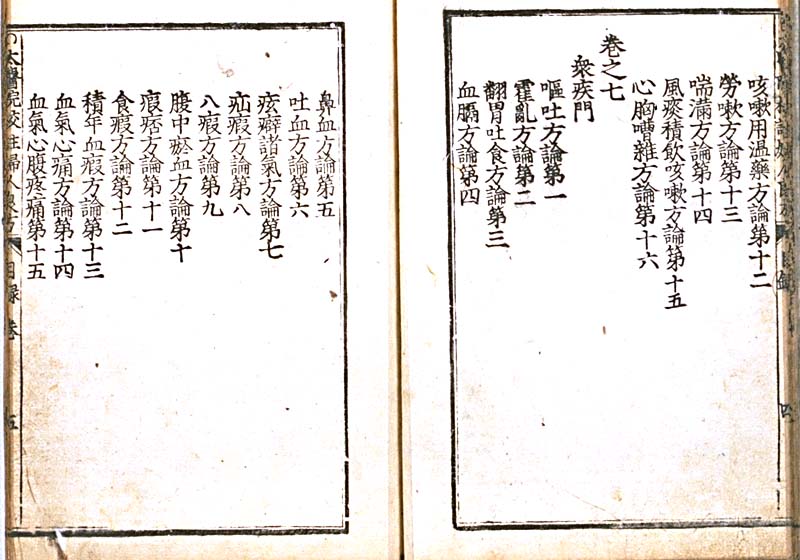 咳嗽用温藥方論第十二
勞嗽方論第十三
喘滿方論第十四
風痰積飲咳嗽方論第十五
心胸嘈雜方論第十六
卷之七
衆疾門
嘔吐方論第一
霍亂方論第二
翻胃吐食方論第三
血膈方論第四
鼻血方論第五
吐血方論第六
痃癖諸氣方論第七
疝瘕方論第八
八瘕方論第九
腹中瘀血方論第十
瘕痞方論第十一
食瘕方論第十二
積年血瘕方論第十三
血氣心痛方論第十四
血氣心腹疼痛第十五
太醫院校註婦人良方 目錄卷 五